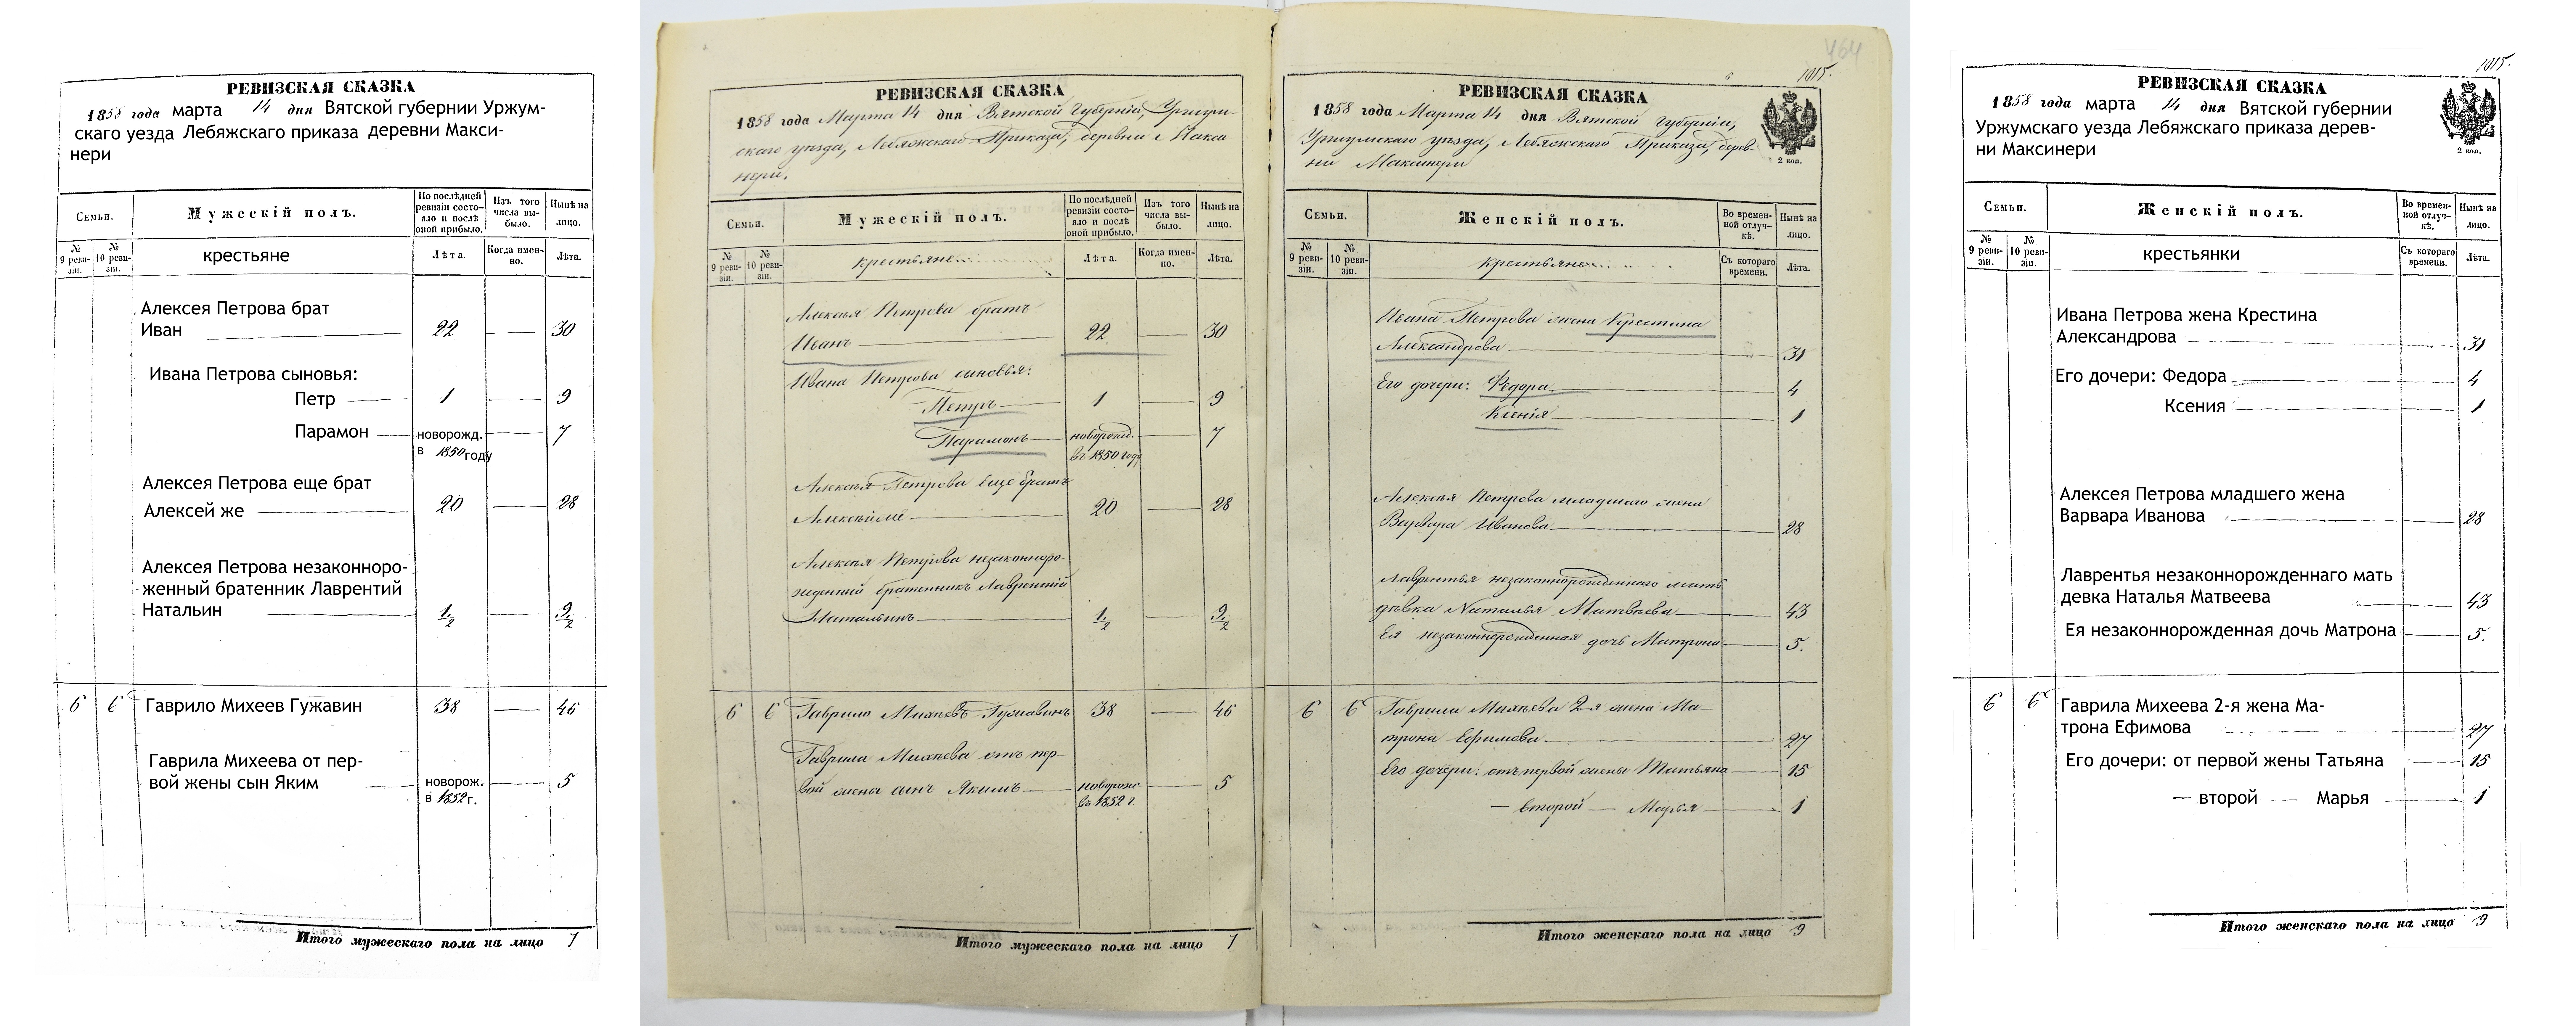 РЕВИЗСКАЯ СКАЗКА
1858 года марта 14 дня Вятской губернии Уржум-
скаго уезда Лебяжскаго приказа деревни Макси-
нери
Семьи.
Мужескій полъ.
По послѣдней ревизіи состо-яло и послѣ оной прибыло.
Изъ того числа вы-было.
Нынѣ на лицо.
№ 9 реви-зіи.
№ 10 реви-зіи.
крестьяне
Лѣта.
Когда имен-но.
Лѣта.
Алексея Петрова брат
Иван 22 30
Ивана Петрова сыновья:
Петр 1 9
Парамон новорожд. 7
в 1850 году
Алексея Петрова еще брат
Алексей же 20 28
Алексея Петрова незаконноро-
женный братенник Лаврентий
Натальин 1/2 9/2
6 6 Гаврило Михеев Гужавин 38 46
Гаврила Михеева от пер-
вой жены сын Яким новорож. 5
в 1852 г.
Итого мужескаго пола на лицо 7
РЕВИЗСКАЯ СКАЗКА
1858 года Марта 14 дня Вятской Губерніи, Уржум-
скаго уѣзда, Лебяжскаго Приказа, деревни Макси
нери.
Семьи.
Мужескій полъ.
По послѣдней ревизіи состо-яло и послѣ оной прибыло.
Изъ того числа вы-было.
Нынѣ на лицо.
№ 9 реви-зіи.
№ 10 реви-зіи.
крестьяне
Лѣта.
Когда имен-но.
Лѣта.
Алексѣя Петрова братъ
Иванъ 22 30
Ивана Петрова сыновья:
Петръ 1 9
Парамонъ новорожд. 7
въ 1850 году
Алексѣя Петрова еще братъ
Алексѣй же 20 28
Алексѣя Петрова незаконноро-
жденный братенникъ Лаврентій
Натальинъ 1/2 9/2
6 6 Гаврило Михѣевъ Гужавинъ 38 46
Гаврила Михѣева отъ пер-
вой жены сынъ Якимъ новорожд 5
въ 1852 г.
Итого мужескаго пола на лицо 7
464
6
1015.
РЕВИЗСКАЯ СКАЗКА
1858 года Марта 14 дня Вятской Губерніи,
Уржумскаго уѣзда, Лебяжскаго Приказа, дерев-
ни Максинери
2 коп.
Семьи.
Женскій полъ.
Во времен-ной отлуч-кѣ.
Нынѣ на лицо.
№ 9 реви-зіи.
№ 10 реви-зіи.
крестьянки
Съ котораго времени.
Лѣта.
Ивана Петрова жена Крестина
Александрова 31
Его дочери: Федора 4
Ксенія 1
Алексѣя Петрова младшаго жена
Варвара Иванова 28
Лаврентья незаконнорожденнаго мать
дѣвка Наталья Матвѣева 43
Ея незаконнорожденная дочь Матрона 5.
6 6 Гаврила Михѣева 2-я жена Ма-
трона Ефимова 27
Его дочери: отъ первой жены Татьяна 15
— второй — Марья 1
Итого женскаго пола на лицо 9
1015.
РЕВИЗСКАЯ СКАЗКА
1858 года марта 14 дня Вятской губернии
Уржумскаго уезда Лебяжскаго приказа дерев-
ни Максинери
2 коп.
Семьи.
Женскій полъ.
Во времен-ной отлуч-кѣ.
Нынѣ на лицо.
№ 9 реви-зіи.
№ 10 реви-зіи.
крестьянки
Съ котораго времени.
Лѣта.
Ивана Петрова жена Крестина
Александрова 31
Его дочери: Федора 4
Ксения 1
Алексея Петрова младшего жена
Варвара Иванова 28
Лаврентья незаконнорожденнаго мать
девка Наталья Матвеева 43
Ея незаконнорожденная дочь Матрона 5.
6 6 Гаврила Михеева 2-я жена Ма-
трона Ефимова 27
Его дочери: от первой жены Татьяна 15
— второй — Марья 1
Итого женскаго пола на лицо 9